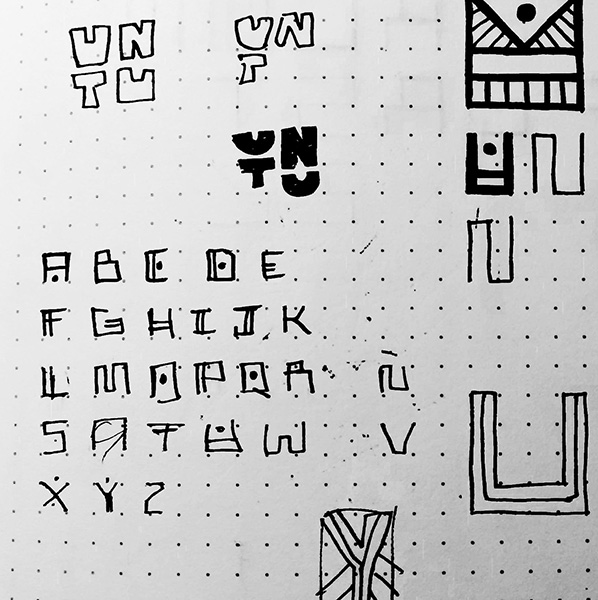 UN
TU
UN
T
UN
TU
U N
N
A B C D E
F G H I J K
L M O P Q R Ñ
S T U W V
X Y Z
U
Y